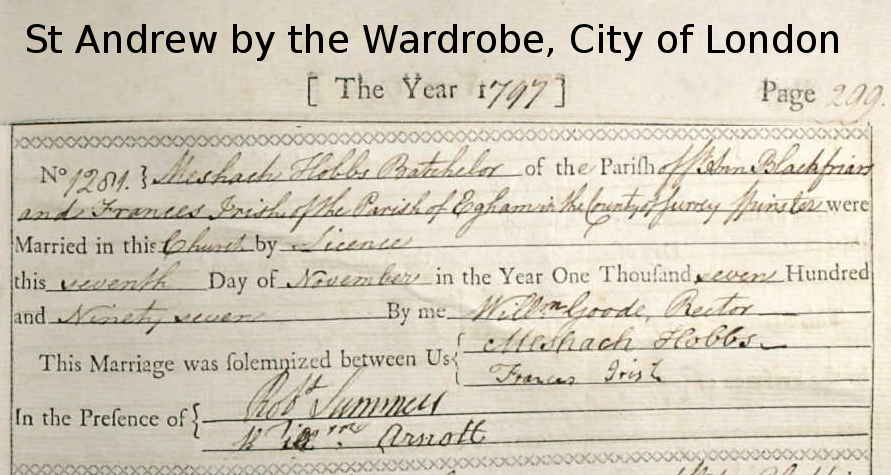 St Andrew by the Wardrobe, City of London
[ The Year 1797 ] Page 299.
No 1281. } Meshach Hobbs Batchelor of the Parish of St Ann Blackfriars
and Frances Irish of the Parish of Egham in the County of Surrey Spinster were
Married in this Church by Licence
this seventh Day of November in the Year One Thousand seven Hundred
and Ninety seven By me Willm Goode, Rector
This Marriage was solemnized between Us { Meshach Hobbs
Frances Irish
In the Presence of { Robt Summers
Willm Arnott